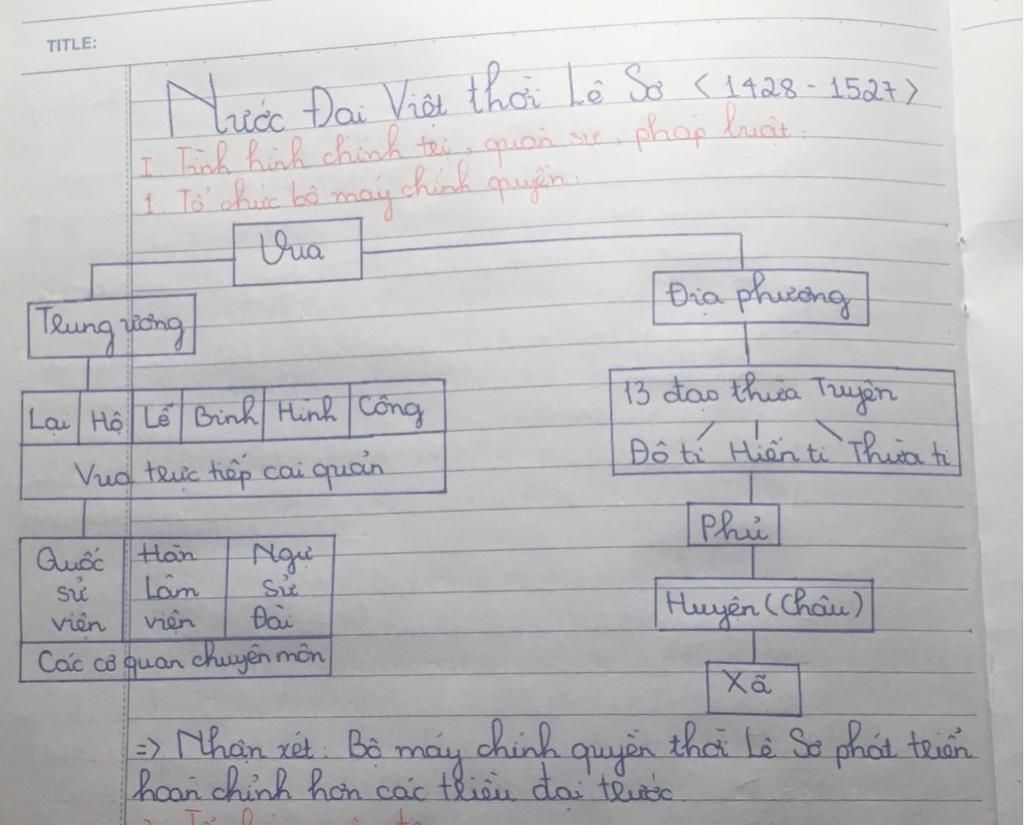 TITLE:
Nước Đại Việt thời Lê Sơ <1428 - 1527>
I. Tình hình chính trị, quân sự, pháp luật.
1. Tổ chức bộ máy chính quyền.
Vua
Trung ương
Địa phương
Lại Hộ Lễ Binh Hình Công
Vua trực tiếp cai quản
13 đạo thừa Tuyên
Đô ti Hiến ti Thừa ti
Phủ
Quốc sử viện
Hàn Lâm viện
Ngự sử Đài
Huyện (Châu)
Các cơ quan chuyên môn
Xã
=> Nhận xét: Bộ máy chính quyền thời Lê Sơ phát triển
hoàn chỉnh hơn các triều đại trước.